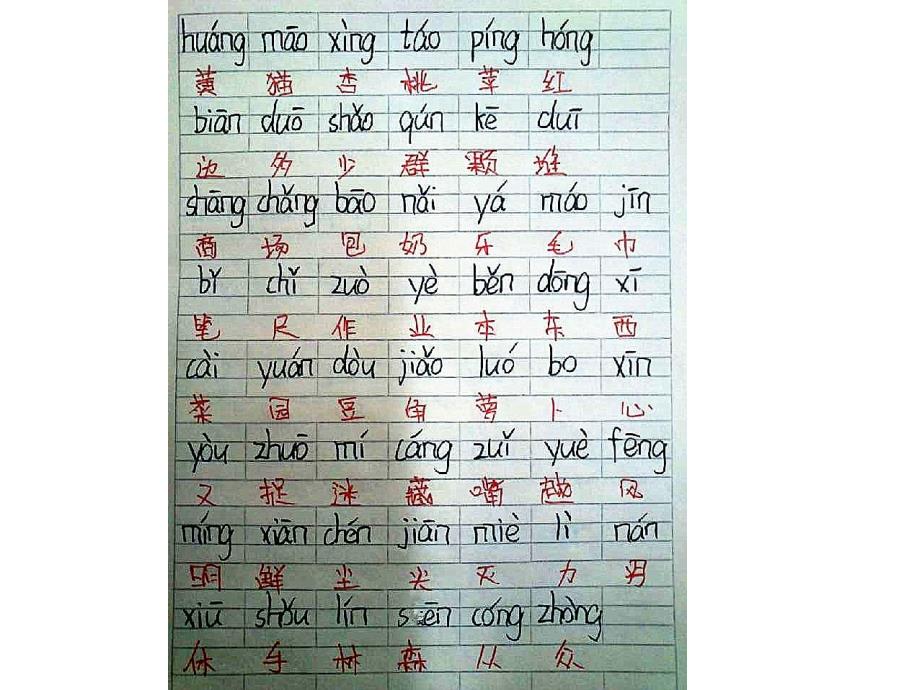 huáng māo xìng táo píng hóng
黄 猫 杏 桃 苹 红
biān duō shǎo qún kē duī
边 多 少 群 颗 堆
shāng chǎng bāo nǎi yá máo jīn
商 场 包 奶 牙 毛 巾
bǐ chǐ zuò yè běn dōng xī
笔 尺 作 业 本 东 西
cài yuán dòu jiǎo luó bo xīn
菜 园 豆 角 萝 卜 心
yòu zhuō mí cáng zuǐ yuè fēng
又 捉 迷 藏 嘴 越 风
míng xiān chén jiān miè lì nán
明 鲜 尘 尖 灭 力 男
xiū shǒu lín sēn cóng zhòng
休 手 林 森 从 众